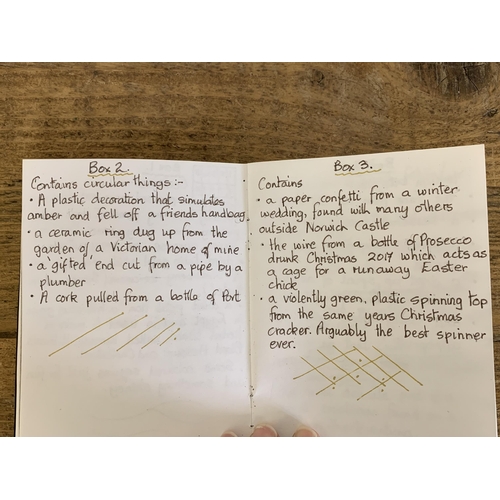 Box 2.
Contains circular things:-
• A plastic decoration that simulates
amber and fell off a friends handbag
• a ceramic ring dug up from the
garden of a Victorian home of mine
• a 'gifted' end cut from a pipe by a
plumber
• A cork pulled from a bottle of Port
Box 3.
Contains
• a paper confetti from a winter
wedding, found with many others
outside Norwich Castle
• the wire from a bottle of Prosecco
drunk Christmas 2017 which acts as
a cage for a runaway Easter
chick
• a violently green, plastic spinning top
from the same years Christmas
cracker. Arguably the best spinner
ever.